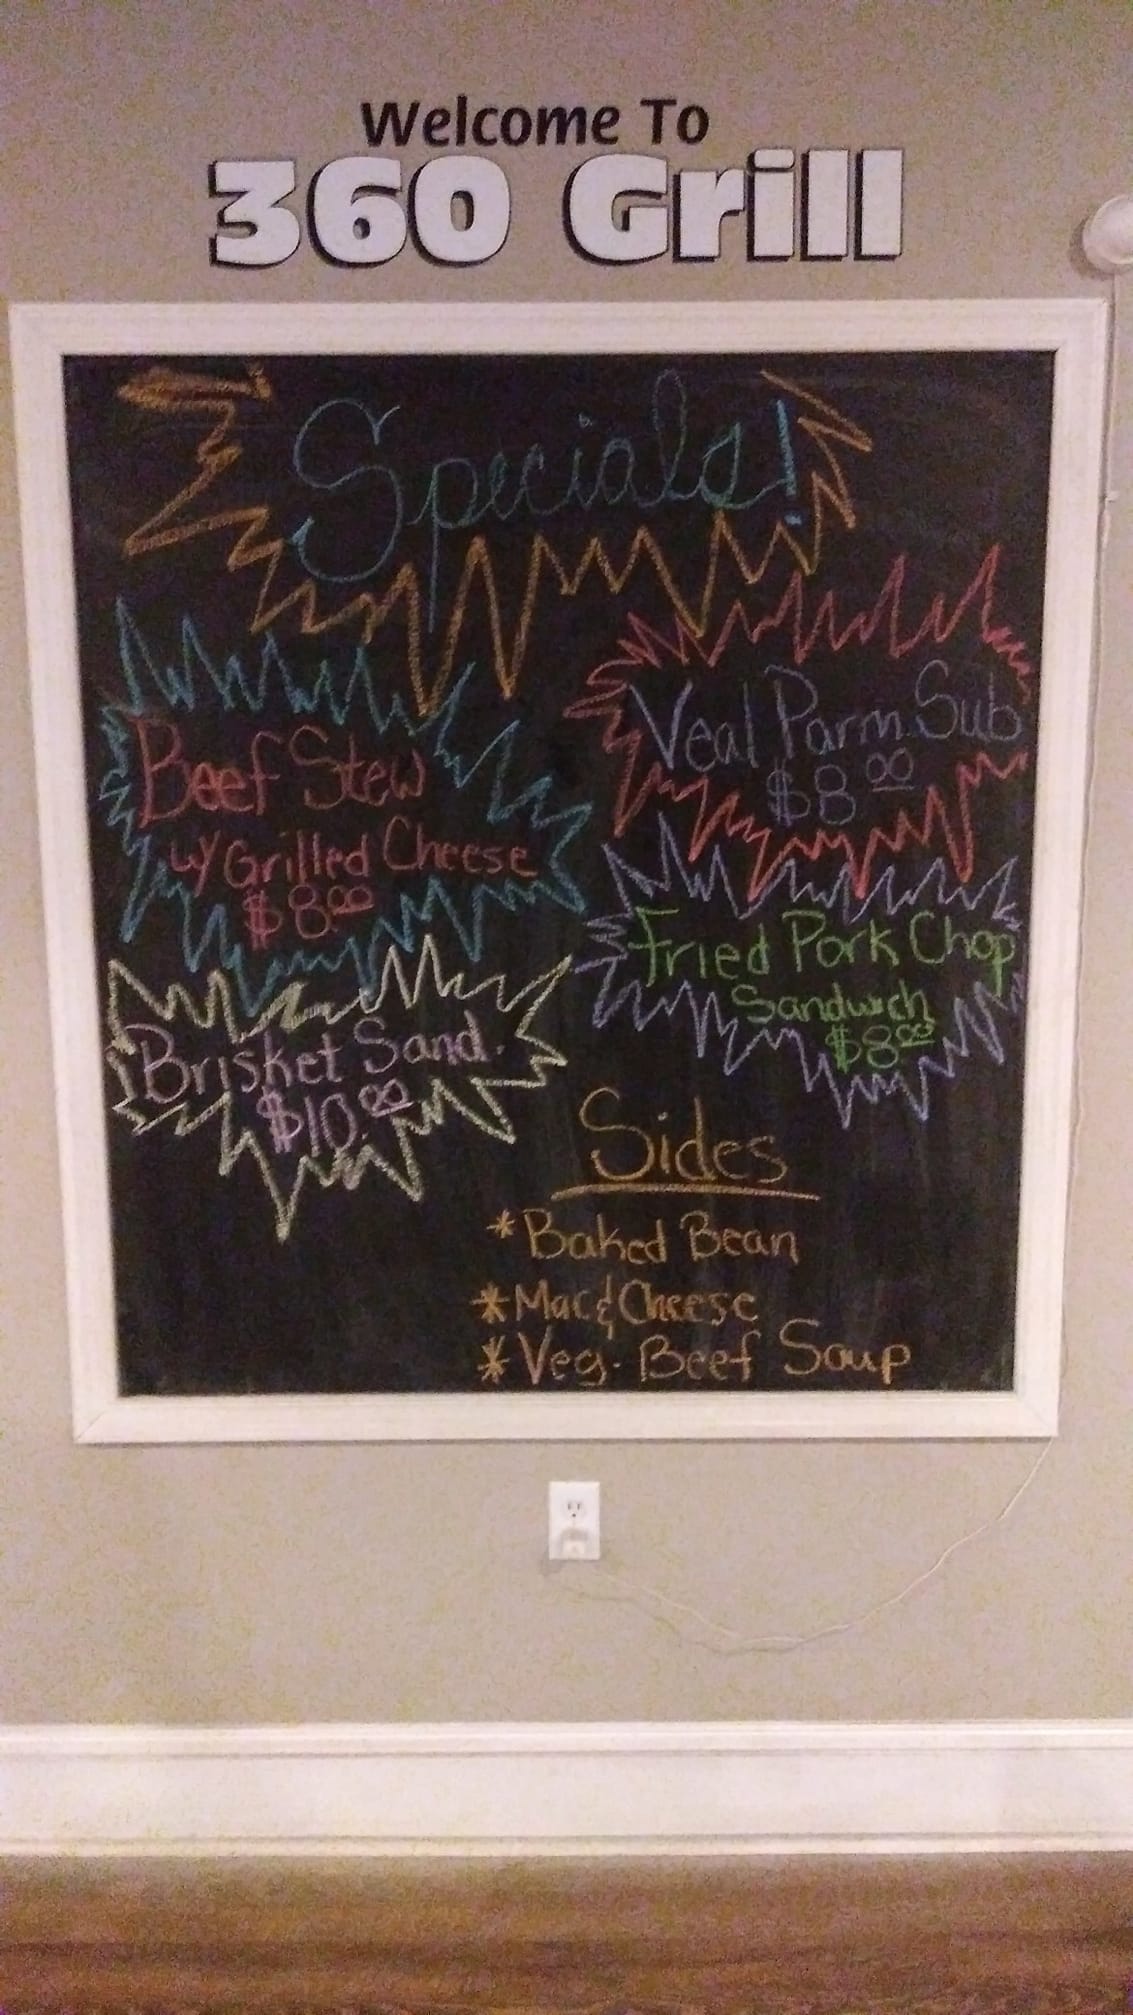 Welcome To
360 Grill
Specials!
Beef Stew
w/ Grilled Cheese
$8.00
Brisket Sand.
$10.00
Veal Parm. Sub
$8.00
Fried Pork Chop
Sandwich
$8.00
Sides
*Baked Bean
*Mac & Cheese
*Veg. Beef Soup